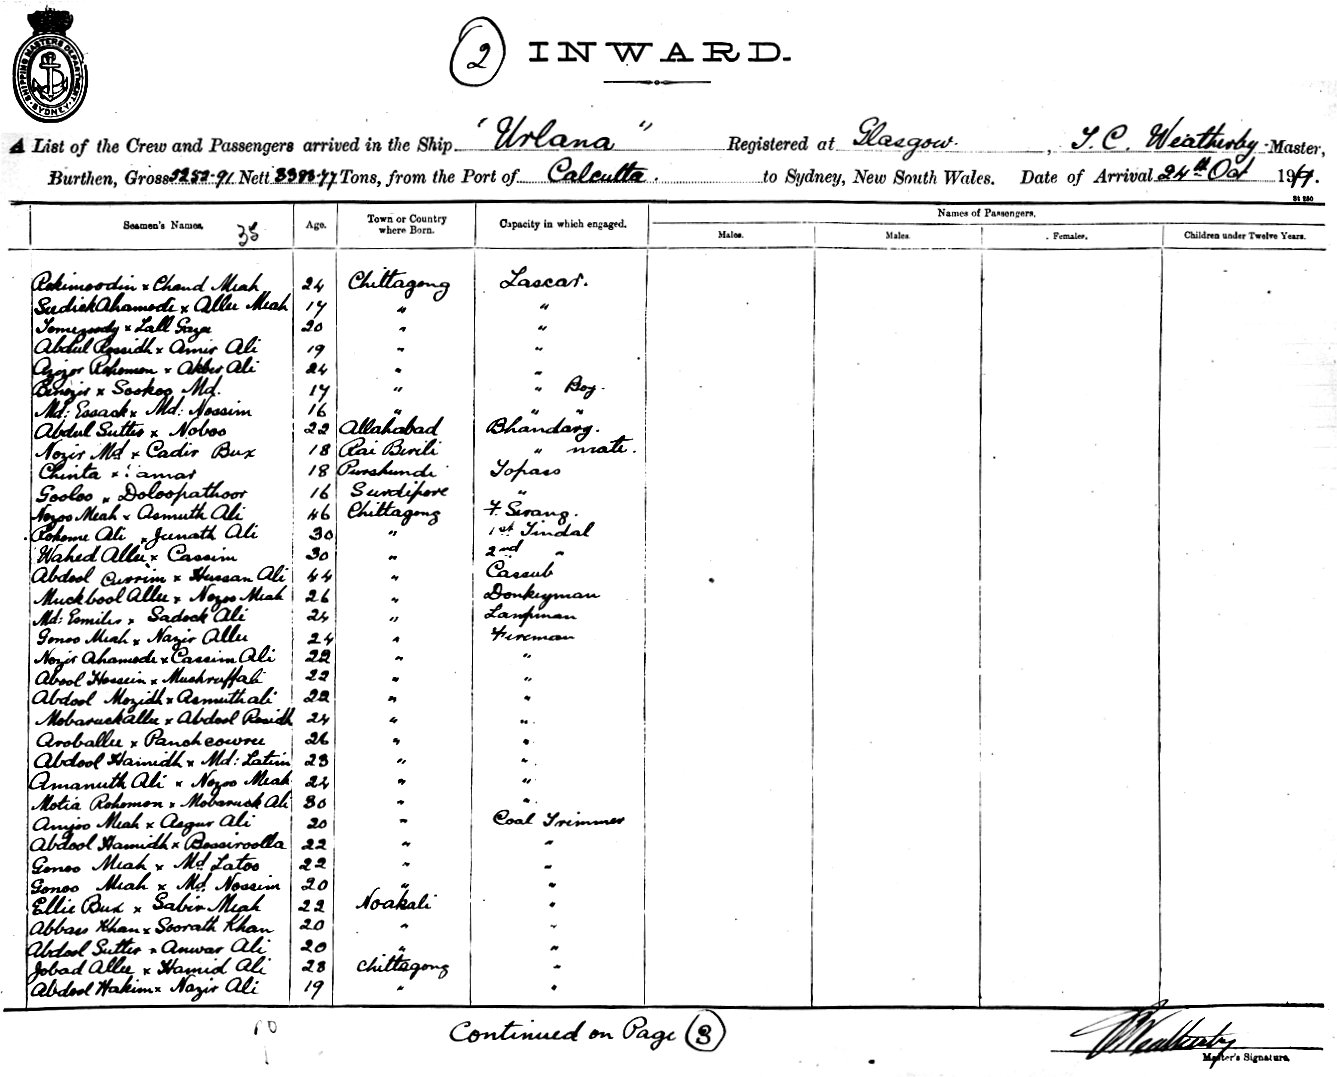 SHIPPING MASTERS DEPARTMENT SYDNEY
2 INWARD.
A List of the Crew and Passengers arrived in the Ship "Urlana" Registered at Glasgow. , T. C. Weatherby Master,
Burthen, Gross 5252.91 Nett Tons, from the Port of Calcutta. to Sydney, New South Wales. Date of Arrival 24th Oct 19
Names of Passengers.
Seamen's Names. 35 Age. Town or Country where Born. Capacity in which engaged. Males. Males. Females. Children under Twelve Years.
Rokimoodin x Chand Meah 24 Chittagong Lascar.
Sudick Ahamode x Allee Meah 17 " "
x Lall Gaza 20 " "
Abdul Rossidh x Amir Ali 19 " "
Azizor Rohomon x Akber Ali 24 " "
Benozir x Sookoo Md. 17 " " Boy.
Md: Essack x Md: Nossim 16 " " "
Abdul Sutter x Noboo 22 Allahabad Bhandary.
Nozir Md x Cadir Bux 18 Rai Bireli " mate.
Chinta x 18 Topass
Gooloo x Doloopathoor 16 Surdipore "
Nozoo Meah x Asmuth Ali 46 Chittagong F. Serang.
Rohome Ali x Junath Ali 30 " 1st Tindal
Wahed Allee x Cassim 30 " 2nd "
Abdool Currim x Hussan Ali 44 " Cassub
Muckbool Allee x Nozoo Meah 26 " Donkeyman
Md: Esmiler x Sadock Ali 24 " Lampman
Gonoo Meah x Nazir Allee 24 " Fireman
Nozir Ahamode x Cassim Ali 22 " "
Abool Hossein x Mushruffali 22 " "
Abdool Mozidh x Asmuthali 22 " "
Mobaruckallee x Abdool Rosidh 24 " "
Aroballee x Panchcowree 26 " "
Abdool Hamidh x Md: Latim 23 " "
Amanuth Ali x Nozoo Meah 24 " "
Motia Rohomon x Mobaruck Ali 30 " "
Amjoo Meah x Asgur Ali 20 " Coal Trimmer
Abdool Hamidh x Bossiroolla 22 " "
Gonoo Meah x Md. Latoo 22 " "
Gonoo Meah x Md. Nossim 20 " "
Ellie Bux x Sabir Meah 22 Noakali "
Abbas Khan x Soorath Khan 20 " "
Abdool Sutter x Anwar Ali 20 " "
Jobad Allee x Hamid Ali 28 Chittagong "
Abdool Hakim x Nazir Ali 19 " "
Continued on Page 3
Weatherby
Master's Signature.